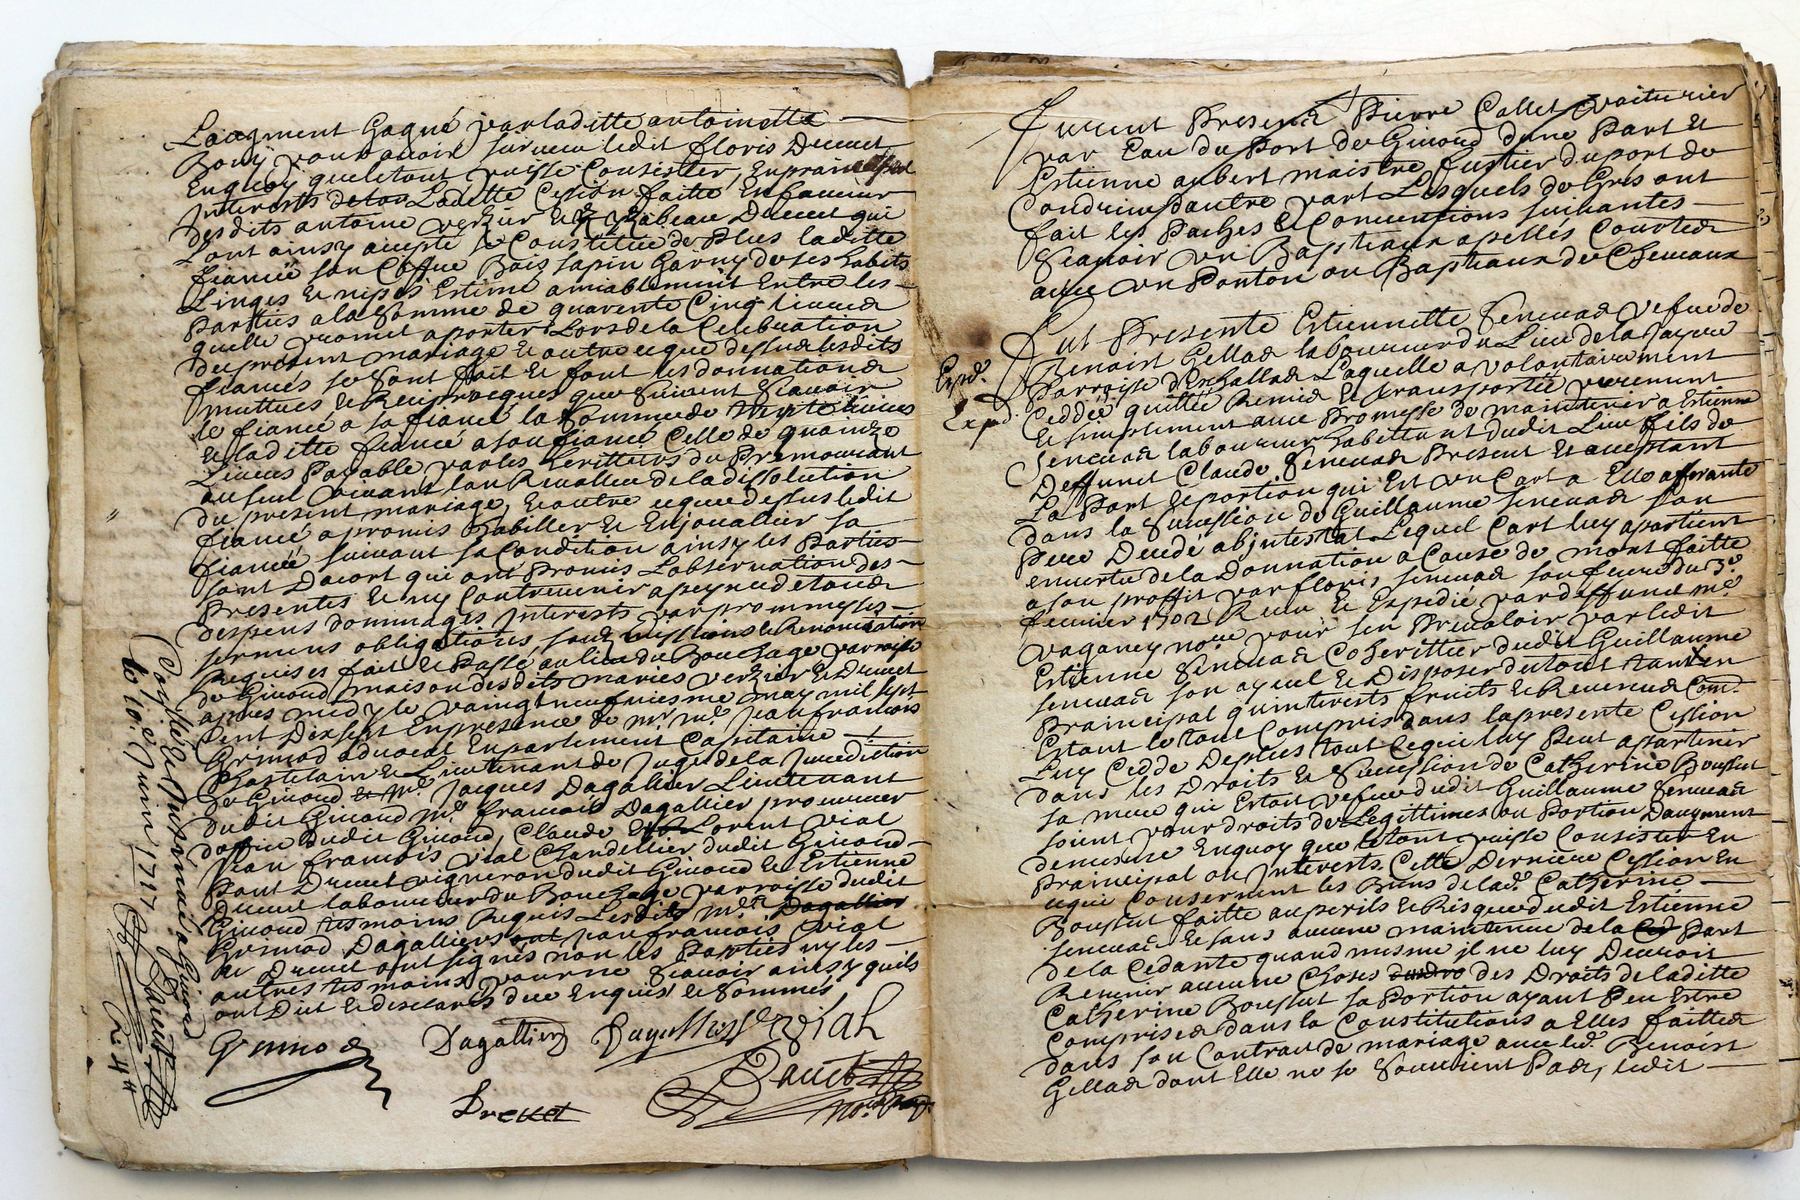 Laugment Gagné par laditte antoinette
Bony pour avoir survecu ledit floris Drevet
En quoy que le tout puisse Consister, En principal
Interests Laditte Cession faitte En faveur
desdits antoine verzier et yzabeau Drevet qui
Lont ainsy accepté se Constitue de Plus laditte
fiancée son Coffre Bois sapin Garny de ses habits
Linges et nipes Estimé amiablement Entre les
Parties a la Somme de quarente Cinq livres
quelle promet aporter Lors de la Celebration
du present mariage et outre ce que dessus lesdits
fiancés se sont fait et font les donnations
muttues et Reciproques que suivent Scavoir
le fiancé a sa fiancé la Somme de trente livres
et laditte fiancé a son fiancé Celle de quinze
Livres Payable par les heritiers du Premourant
au survivant lan Revollu de la dissolution
du present mariage, Et outre ce que dessus ledit
fiancé a promis habiller et Enjouallier sa
fiancée suivant sa Condition ainsy les Parties
sont Dacort qui ont Promis Lobservation des
Presentes et ny Contrevenir a peyne de tous
despens dommages Interests par prommesses
sermens obligations, et Renonciations
Requises fait et Passé au lieu du Bouchage parroisse
de Givord maison desdits mariés verzier et Drevet
apres midy le vaingt neufviesme may mil sept
Cent Dixsept En presence de Mr. Me. Jean francois
Grimod advocat En parlement Capitaine
Chastelain et Lieutenant de Juge de la Jurediction
de Givord Me. Jacques Dagallier Lieutenant
dudit Givord Me. francois Dagallier procureur
doffice dudit Givord, Claude Lorent vial
Jean francois vial Chandellier dudit Givord
Paul Drevet vigneron dudit Givord et Estienne
Drevet laboureur du Bouchage parroisse dudit
Givord tesmoins Requis Lesdits Mrs. Dagallier
Grimod Dagalliers Jean francois vial
et Drevet ont signés non les Parties ny les
autres tesmoins pour ne Scavoir ainsy quils
ont Dit et desclarés de ce Enquis et Sommés
Grimod
Dagallier
Dagallier
vial
Drevet
Bauet
a Givord
le 10e. Juin 1717
Bauet
Furent Presens Pierre Collet voiturier
par Eau du Port de Givord dune Part et
Estienne aubert maistre fustier du port de
Condrieu dautre part Lesquels de Gres ont
fait les Paches et Conventions suivantes
Scavoir un Bapteaux apellés Courtes
avec un Ponton ou Bapteaux de Chevaux
Expd.
Expd.
Fut Presente Estiennette Seneuas vefue de
Benoist Gellas laboureur du Lieu de la
Parroisse dEschallas Laquelle a volontairement
Ceddée quittée Remis et transportée purement
et simplement avec Promesse de maintenir a Estienne
Seneuas laboureur habittant dudit Lieu fils de
Deffunct Claude Seneuas Present et acceptant
La Part et portion qui Est un Cart a Elle afferante
dans la Succession de Guillaume Seneuas son
Pere Decedé abjntestat Lequel Cart luy apartient
en vertu de la Donnation a Cause de mort faitte
a son proffit par floris Seneuas son frere du 3e.
fevrier 1702 Receu et Expedié par deffunct Me.
vaganey nore. pour sen Prevaloir par ledit
Estienne Seneuas Coherittier dudit Guillaume
Seneuas son ayeul et Disposer du tout tant En
Praincipal quinterests fruits et Revenus Comé.
Estant le tout Compris dans la presente Cession
Luy Cedde Deplus tout Ce qui luy Peut apartenir
dans les Droits et Succession de Catherine Boussut
sa mere qui Estoit vefue dudit Guillaume Seneuas
soient pour droits de Legittimes ou Portion Daugment
demesme En quoy que le tout puisse Consister En
Praincipal ou Interests. Cette Derniere Cession En
ce que Consernent les Biens de lade. Catherine
Boussut faitte aux perils et Risques dudit Estienne
Seneuas et sans aucune maintenue de la Part
de la Cedante quand mesme il ne luy Devroit
Revenir aucune Choses des Droits de laditte
Catherine Boussut sa Portion ayant Peu Estre
Comprises dans la Constitutions a Elles faittes
dans son Contract de mariage avec led. Benoist
Gellas dont Elle ne se Souvient Pas, ledit